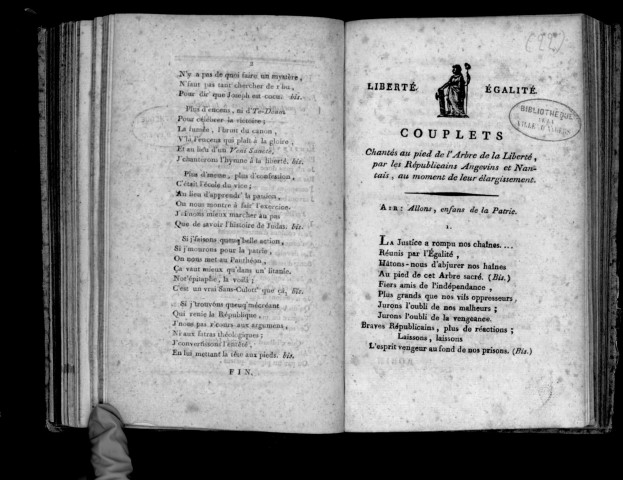 2
N'y a pas de quoi faire un mystère,
N'faut pas tant chercher de
Pour dir' que Joseph est cocu. bis.
Plus d'encens, ni d'Te-Deum
Pour célébrer la victoire;
La fumée, l'bruit du canon,
V'là l'encens qui plaît à la gloire;
Et au lieu d'un Veni Sancte,
J'chanterons l'hymne à la liberté. bis.
Plus d'messe, plus d'confession,
C'était l'école du vice;
Au lieu d'apprendr' la passion,
On nous montre à fair' l'exercice.
J'aimons mieux marcher au pas
Que de savoir l'histoire de Judas. bis.
Si j'faisons queuq'belle action,
Si j'mourons pour la patrie,
On nous met au Panthéon,
Ça vaut mieux qu'dans un' litanie.
Not'épitaphe, la voilà;
C'est un vrai Sans-Culott' que ça, bis.
Si j'trouvons queuq'mécréant
Qui renie la République,
J'nous pas r'cours aux argumens,
Ni aux fatras théologiques;
J'convertissons l'entêté,
En lui mettant la tête aux pieds. bis.
FIN.
(22)
LIBERTÉ, ÉGALITÉ.
BIBLIOTHÈQUE
DE LA
VILLE D'ANGERS
COUPLETS
Chantés au pied de l'Arbre de la Liberté,
par les Républicains Angevins et Nan-
tais, au moment de leur élargissement.
AIR: Allons, enfans de la Patrie.
1.
LA Justice a rompu nos chaînes....
Réunis par l'Égalité,
Hâtons-nous d'abjurer nos haînes
Au pied de cet Arbre sacré. (Bis.)
Fiers amis de l'indépendance,
Plus grands que nos vils oppresseurs,
Jurons l'oubli de nos malheurs;
Jurons l'oubli de la vengeance.
Braves Républicains, plus de réactions;
Laissons, laissons
L'esprit vengeur au fond de nos prisons. (Bis.)